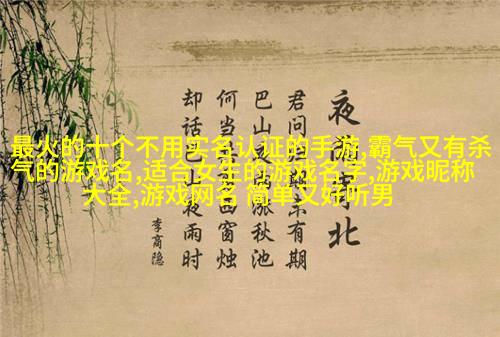 最火的十个不用实名认证的手游,霸气又有杀
气的游戏名,适合女生的游戏名字,游戏昵称
大全,游戏网名 简单又好听男
夜雨寄北
君问有期
巴山涨秋池
何当西窗烛
却话巴山夜雨时
李商隐